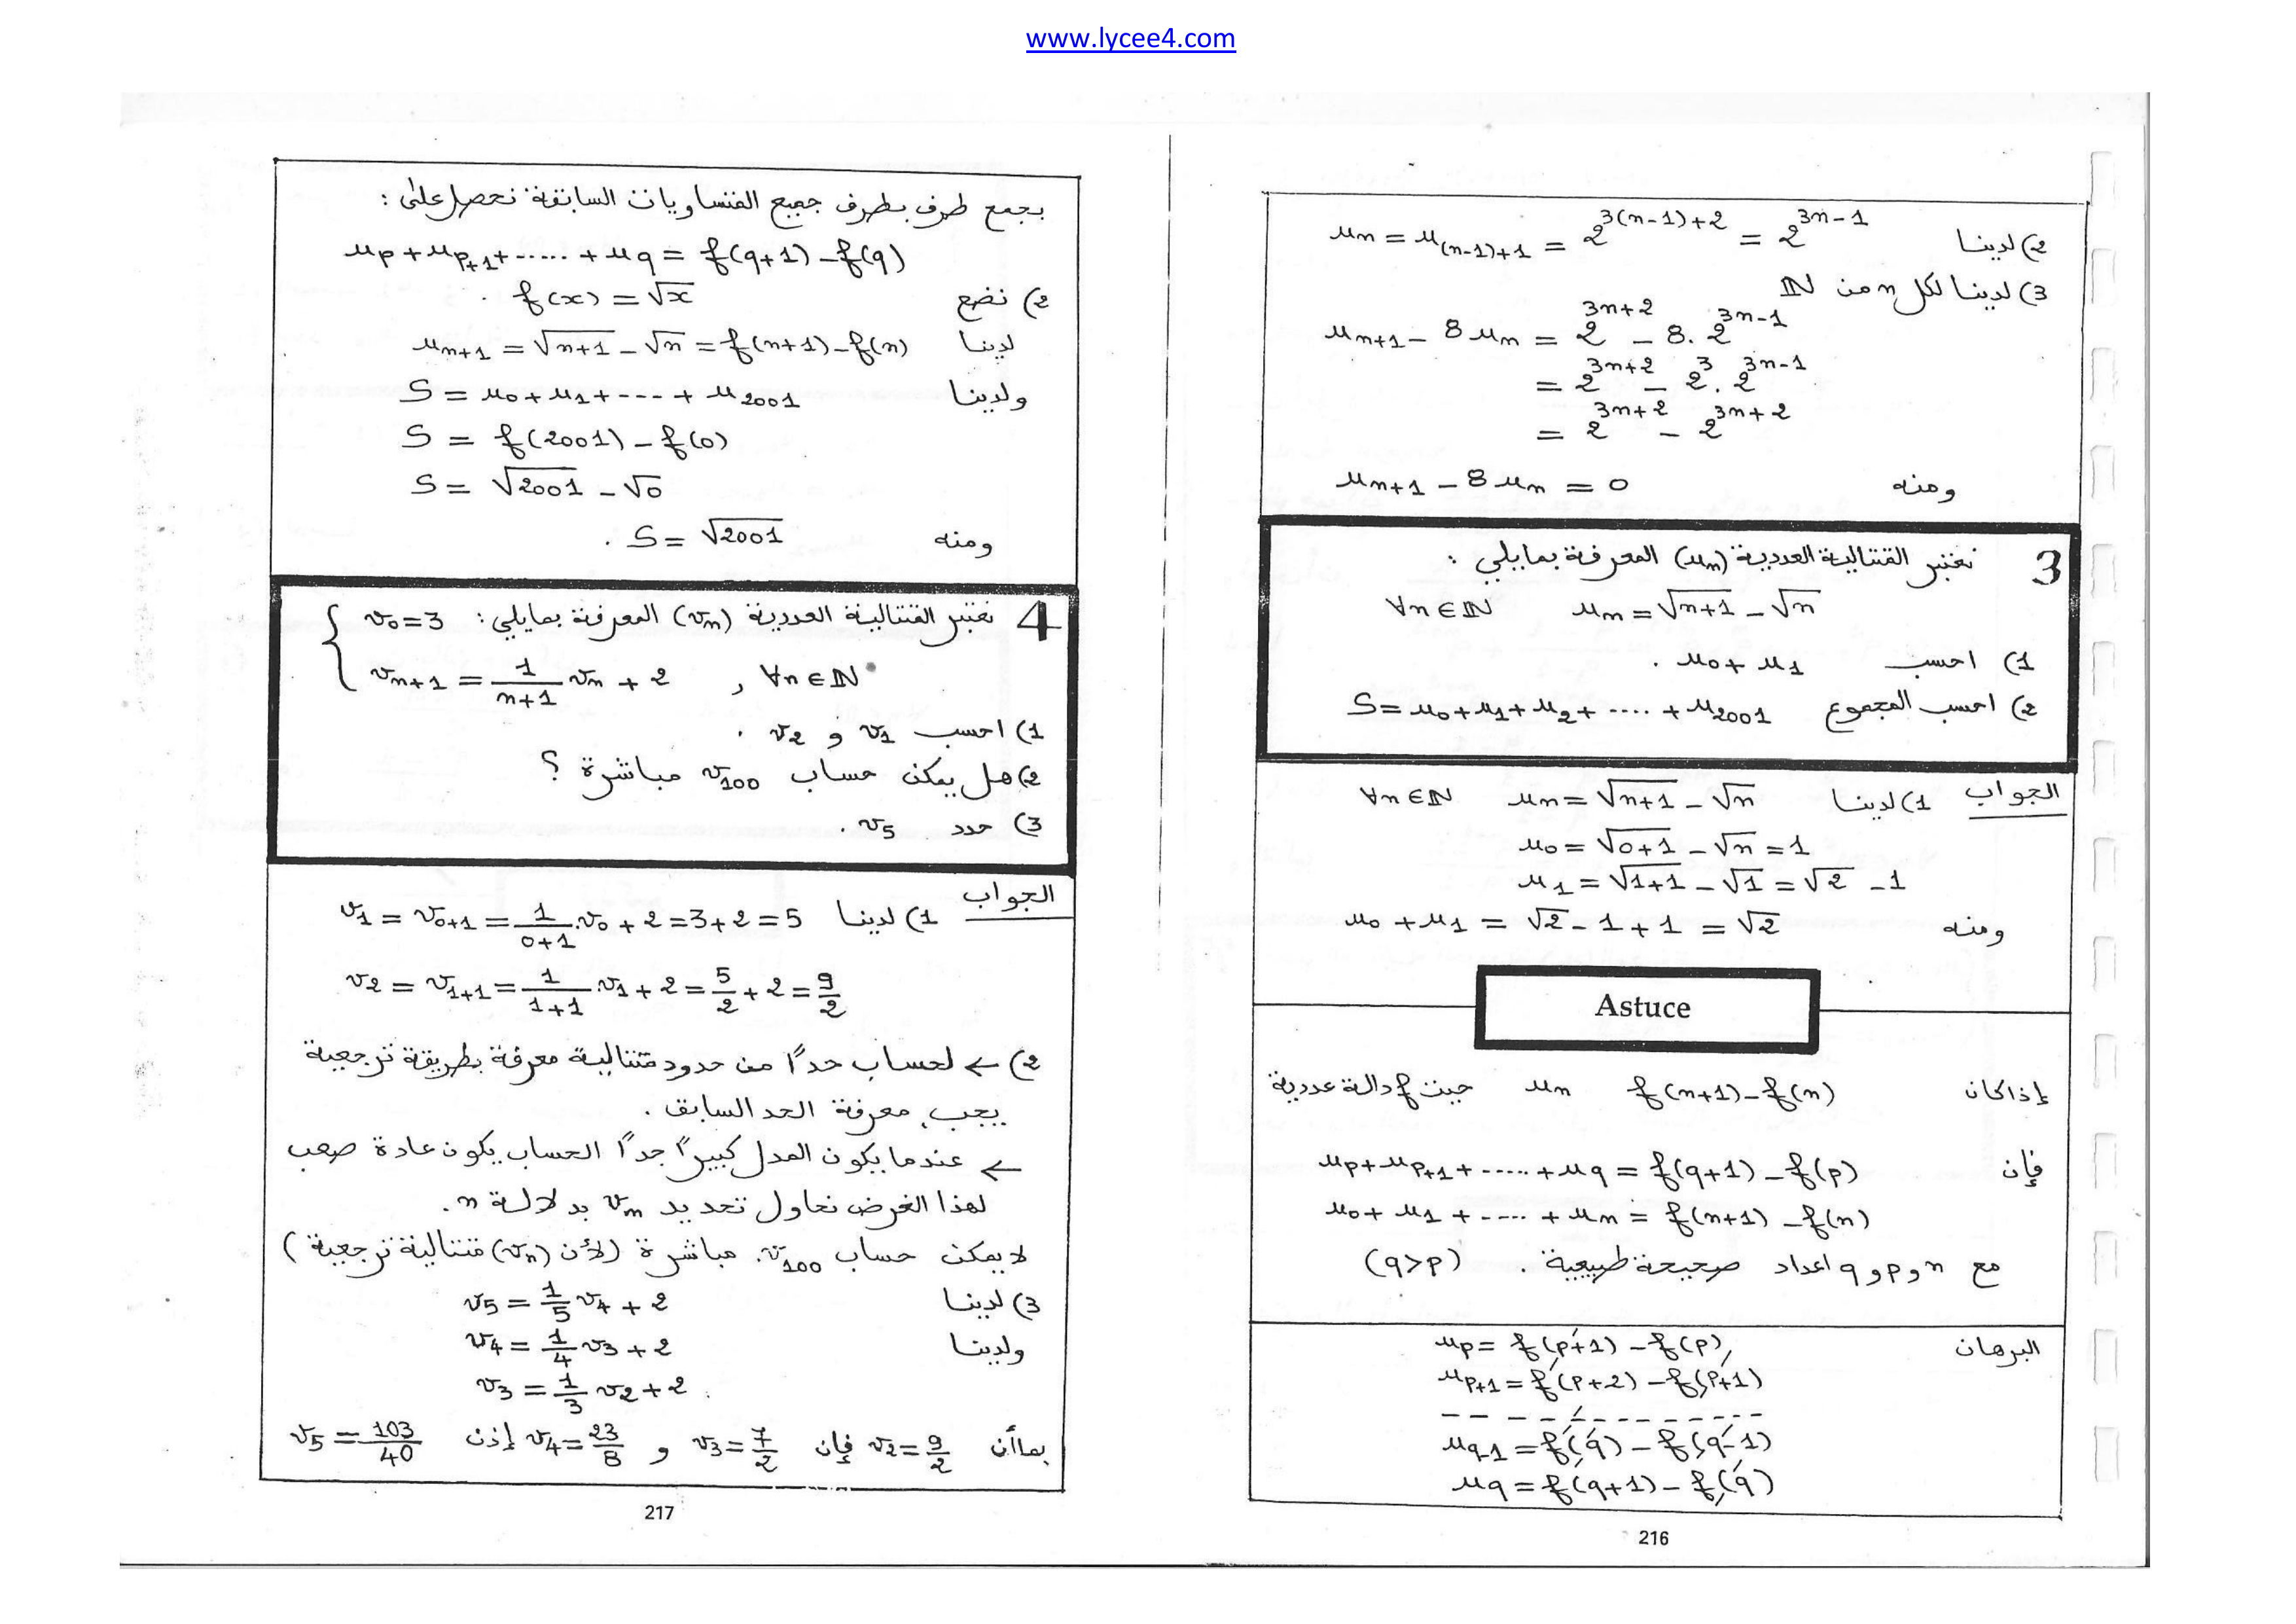 www.lycee4.com
2) لدينا u_n = u_(n-1)+1 = 2^{3(n-1)+2} = 2^{3n-1}
3) لدينا لكل n من ℕ
u_{n+1} - 8u_n = 2^{3n+2} - 8.2^{3n-1}
= 2^{3n+2} - 2^3.2^{3n-1}
= 2^{3n+2} - 2^{3n+2}
ومنه u_{n+1} - 8u_n = 0
3 نعتبر المتتالية العددية (u_n) المعرفة بمايلي :
∀n∈ℕ u_n = √(n+1) - √n
1) احسب u_0 + u_1 .
2) احسب المجموع S = u_0 + u_1 + u_2 + .... + u_2001
الجواب 1) لدينا u_n = √(n+1) - √n ∀n∈ℕ
u_0 = √(0+1) - √n = 1
u_1 = √(1+1) - √1 = √2 - 1
ومنه u_0 + u_1 = √2 - 1 + 1 = √2
Astuce
إذا كان u_n f(n+1) - f(n) حيث f دالة عددية
فإن u_p + u_{p+1} + ..... + u_q = f(q+1) - f(p)
u_0 + u_1 + ..... + u_n = f(n+1) - f(n)
مع n و p و q اعداد صحيحة طبيعية . (q>p)
البرهان u_p = f(p+1) - f(p)
u_{p+1} = f(p+2) - f(p+1)
- - - - - - - - - - - - -
u_{q-1} = f(q) - f(q-1)
u_q = f(q+1) - f(q)
216
بجمع طرف بطرف جميع المتساويات السابقة نحصل على :
u_p + u_{p+1} + ..... + u_q = f(q+1) - f(q)
2) نضع f(x) = √x .
لدينا u_{n+1} = √(n+1) - √n = f(n+1) - f(n)
ولدينا S = u_0 + u_1 + --- + u_2001
S = f(2001) - f(0)
S = √2001 - √0
ومنه S = √2001 .
4 نعتبر المتتالية العددية (v_n) المعرفة بمايلي : { v_0 = 3
v_{n+1} = 1/(n+1) v_n + 2 , ∀n∈ℕ*
1) احسب v_1 و v_2 .
2) هل يمكن حساب v_100 مباشرة ؟
3) حدد v_5 .
الجواب 1) لدينا v_1 = v_{0+1} = 1/(0+1) . v_0 + 2 = 3 + 2 = 5
v_2 = v_{1+1} = 1/(1+1) . v_1 + 2 = 5/2 + 2 = 9/2
2) ← لحساب حداً من حدود متتالية معرفة بطريقة ترجعية
يجب معرفة الحد السابق .
← عندما يكون المدل كبيراً جداً الحساب يكون عادة صعب
لهذا الغرض نحاول تحديد v_n بدلالة n .
لا يمكن حساب v_100 مباشرة (لأن (v_n) متتالية ترجعية)
3) لدينا v_5 = 1/5 v_4 + 2
ولدينا v_4 = 1/4 v_3 + 2
v_3 = 1/3 v_2 + 2 .
بما أن v_2 = 9/2 فإن v_3 = 7/2 و v_4 = 23/8 إذن v_5 = 103/40
217